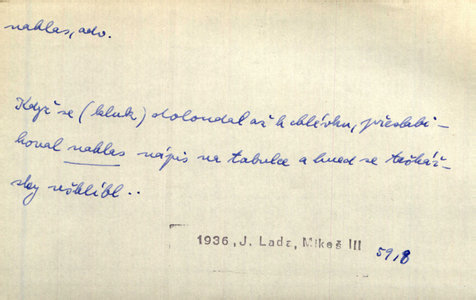 nahlas, adv.
Když se (kluk) doloudal až k chlévku, přeslabi-
koval nahlas nápis na tabulce a hned se taškář-
sky ušklíbl..
1936, J. Lada, Mikeš III
59,8